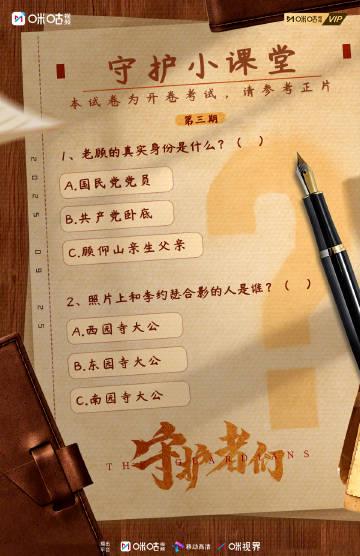 咪咕视频
咪咕视频 VIP
守护小课堂
本试卷为开卷考试，请参考正片
第三期
1、老顾的真实身份是什么？（ ）
A.国民党党员
B.共产党卧底
C.顾仰山亲生父亲
2025 09 25
2、照片上和李约瑟合影的人是谁？（ ）
A.西园寺大公
B.东园寺大公
C.南园寺大公
守护者们
THE GUARDIANS
咪咕视频 移动高清 咪视界